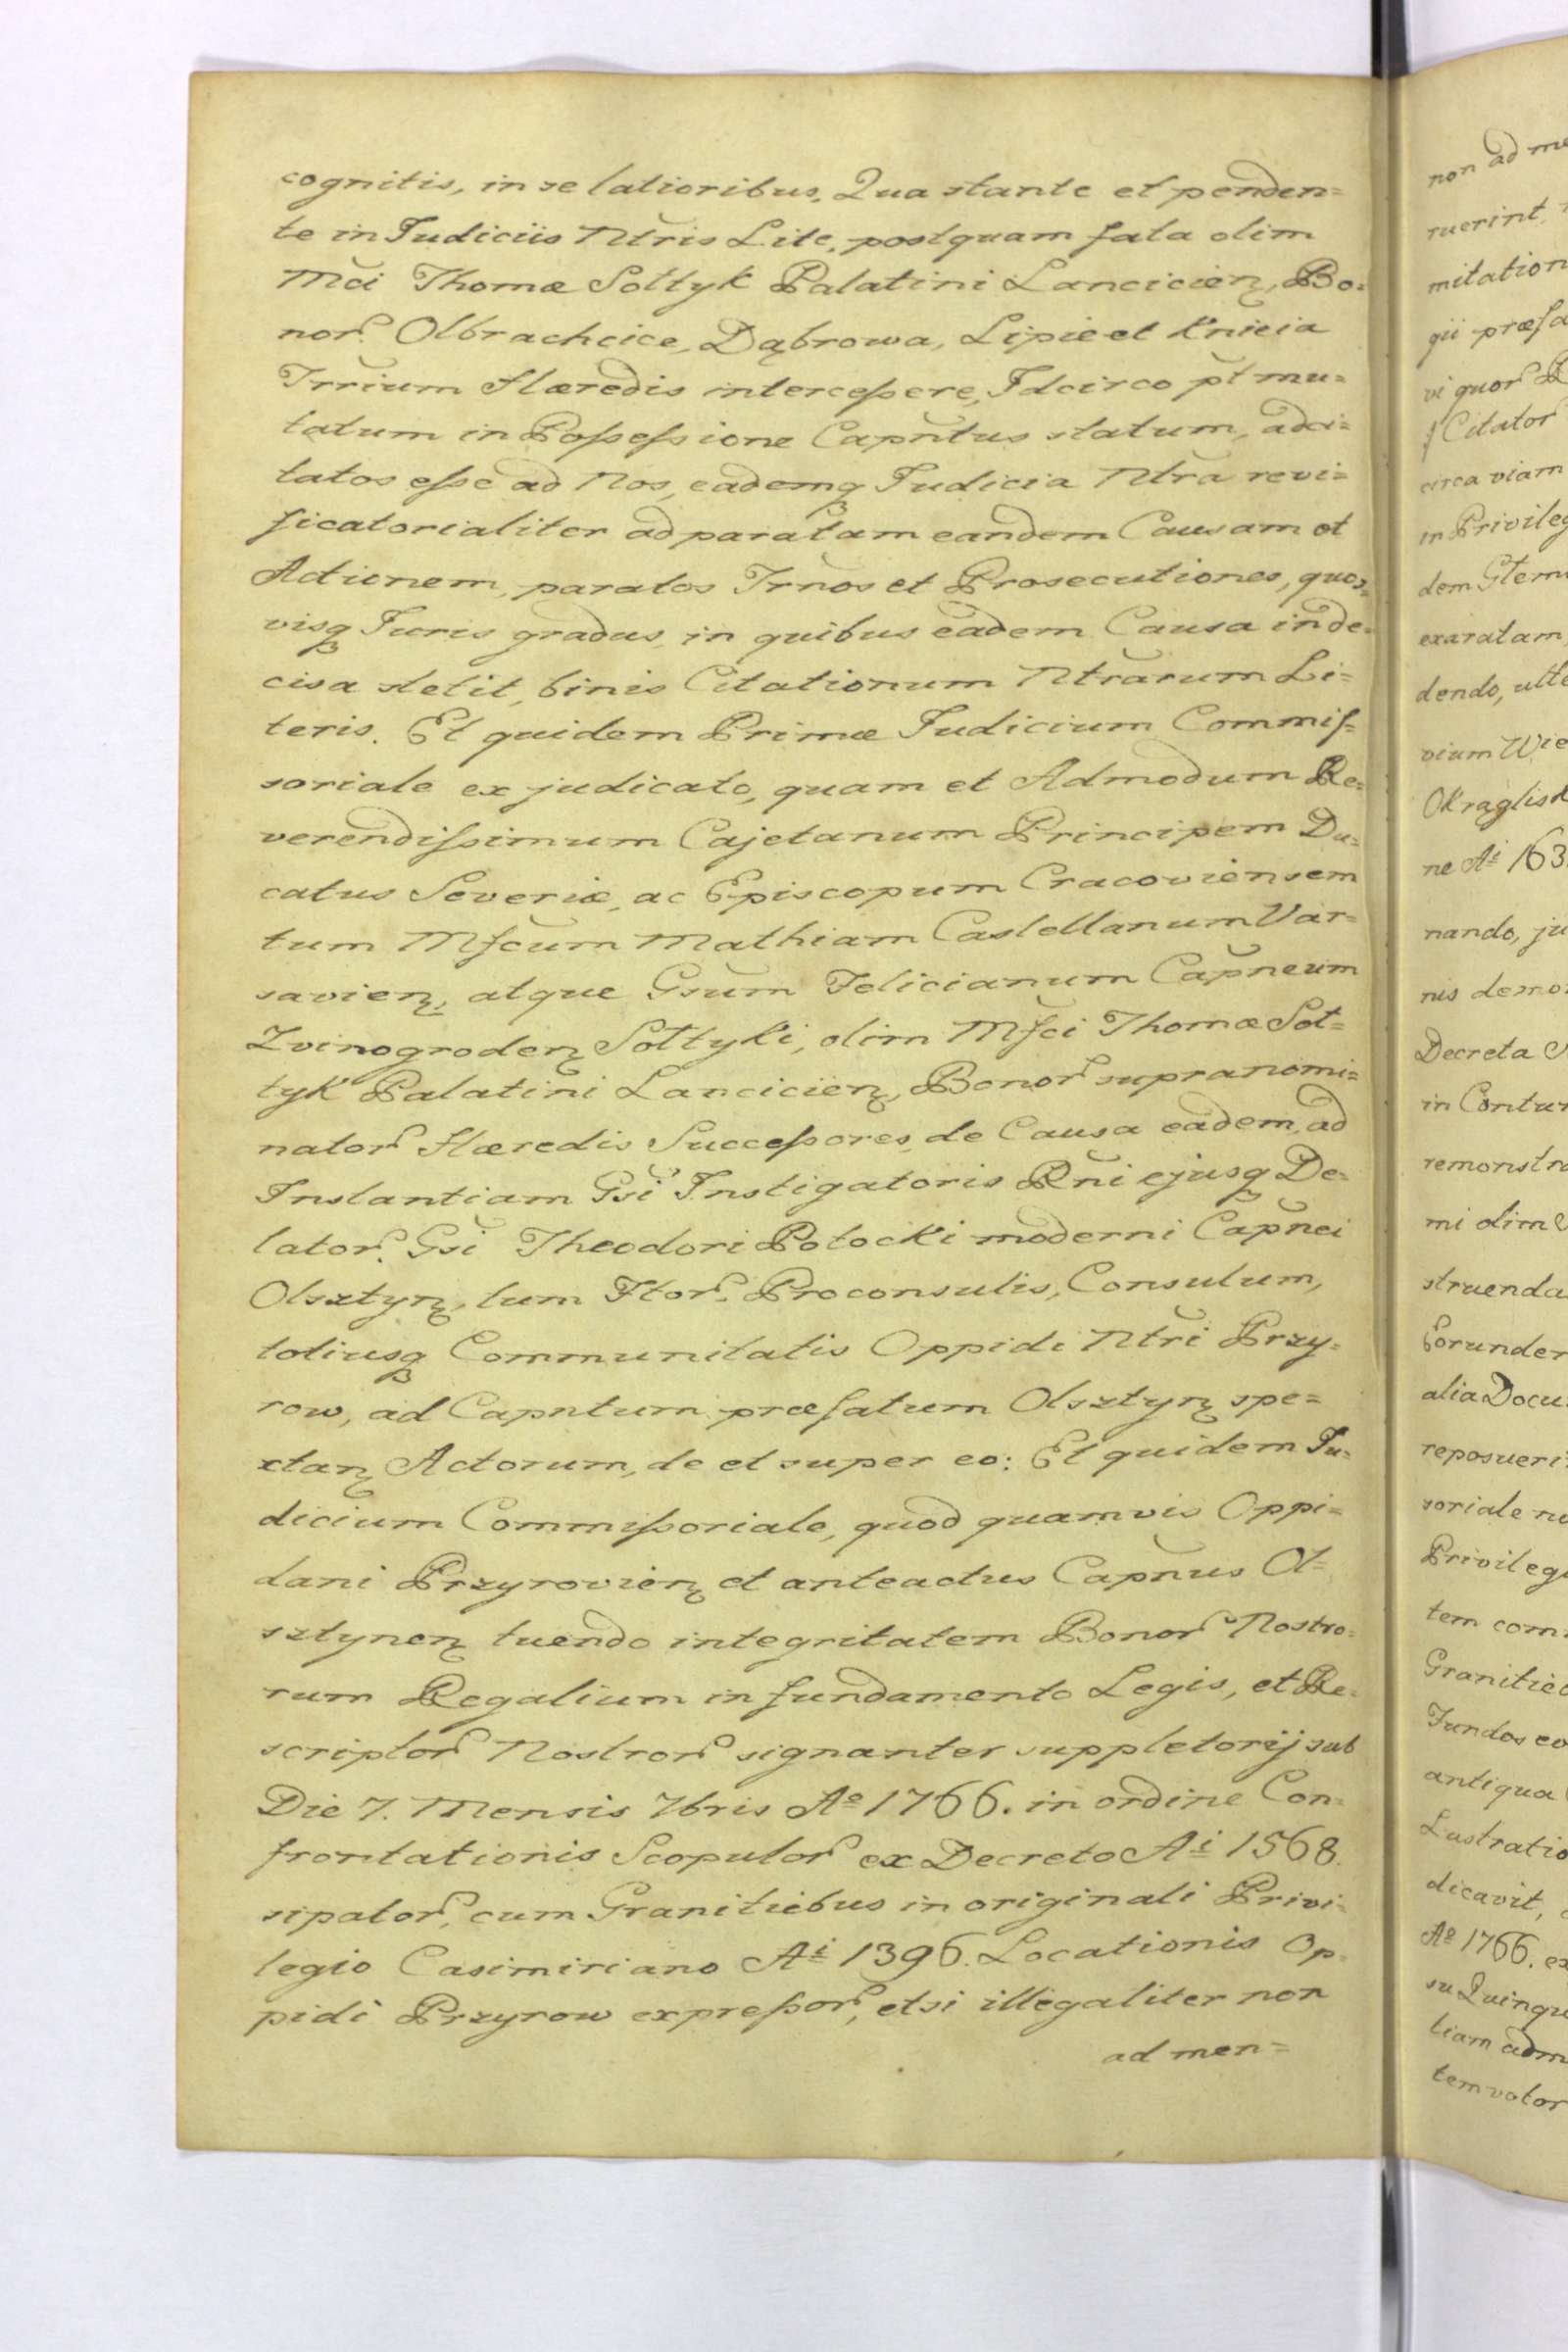 cognitis, in se latioribus, Qua stante et penden=
te in Judiciis Ntris Lite, postquam fata olim
Mci Thomæ Sołtyk Palatini Lancicien, Bo=
nor. Olbrachcice, Dąbrowa, Lipie et Knieia
Trrium Hæredis intercessere, Idcirco pt mu=
tatum in Possessione Capntus statum, adci=
tatos esse ad Nos, eademq Judicia Ntra revi=
ficatorialiter ad paratam eandem Causam et
Actionem, paratos Trnos et Prosecutiones, quos=
visq Juris gradus, in quibus eadem Causa inde=
cisa stetit, binis Citationum Ntrarum Li=
teris. Et quidem Primæ Judicium Commis=
soriale ex judicato, quam et Admodum Re=
verendissimum Cajetanum Principem Du=
catus Severiæ, ac Episcopum Cracoviensem
tum Mfcum Mathiam Castellanum Var=
savien, atque Gsum Felicianum Capneum
Zvinogroden Sołtyki, olim Mfci Thomæ Soł=
tyk Palatini Lancicien, Bonor supranomi=
nator Hæredis Successores, de Causa eadem, ad
Instantiam Gsi Instigatoris Rni ejusq De=
lator. Gsi Theodori Potocki moderni Capnei
Olsztyn, tum Ftor. Proconsulis, Consulum,
totiusq Communitatis Oppidi Ntri Przy=
row, ad Capntum præfatum Olsztyn spe=
ctan Actorum, de et super eo: Et quidem Ju=
dicium Commissoriale, quod quamvis Oppi=
dani Przyrovien et anteactus Capnus Ol=
sztynen tuendo integritatem Bonor Nostro=
rum Regalium in fundamento Legis, et Re=
scriptor Nostror signanter suppletorij sub
Die 7. Mensis 7bris Ao 1766. in ordine Con=
frontationis Scopulor ex Decreto Ai 1568.
sipator, cum Granitiebus in originali Privi=
legio Casimiriano Ai 1396. Locationis Op=
pidi Przyrow expressor, etsi illegaliter non
ad men=
non ad me
ruerint,
mitation
gii præfa
vi quor
Citator
circa viam
in Privileg
dem Gtem
exaratam,
dendo, ulte
vium Wie
Okraglis
ne Ai 163
nando, ju
nis demo
Decreta
in Contu
remonstra
mi olim
struenda
Eorunder
alia Docu
reposueri
soriale
Privileg
tem com
Granitie
Fundos eo
antiqua
Lustratio
dicavit,
Ao 1766. ex
su Quinqu
tiam adm
tem votor